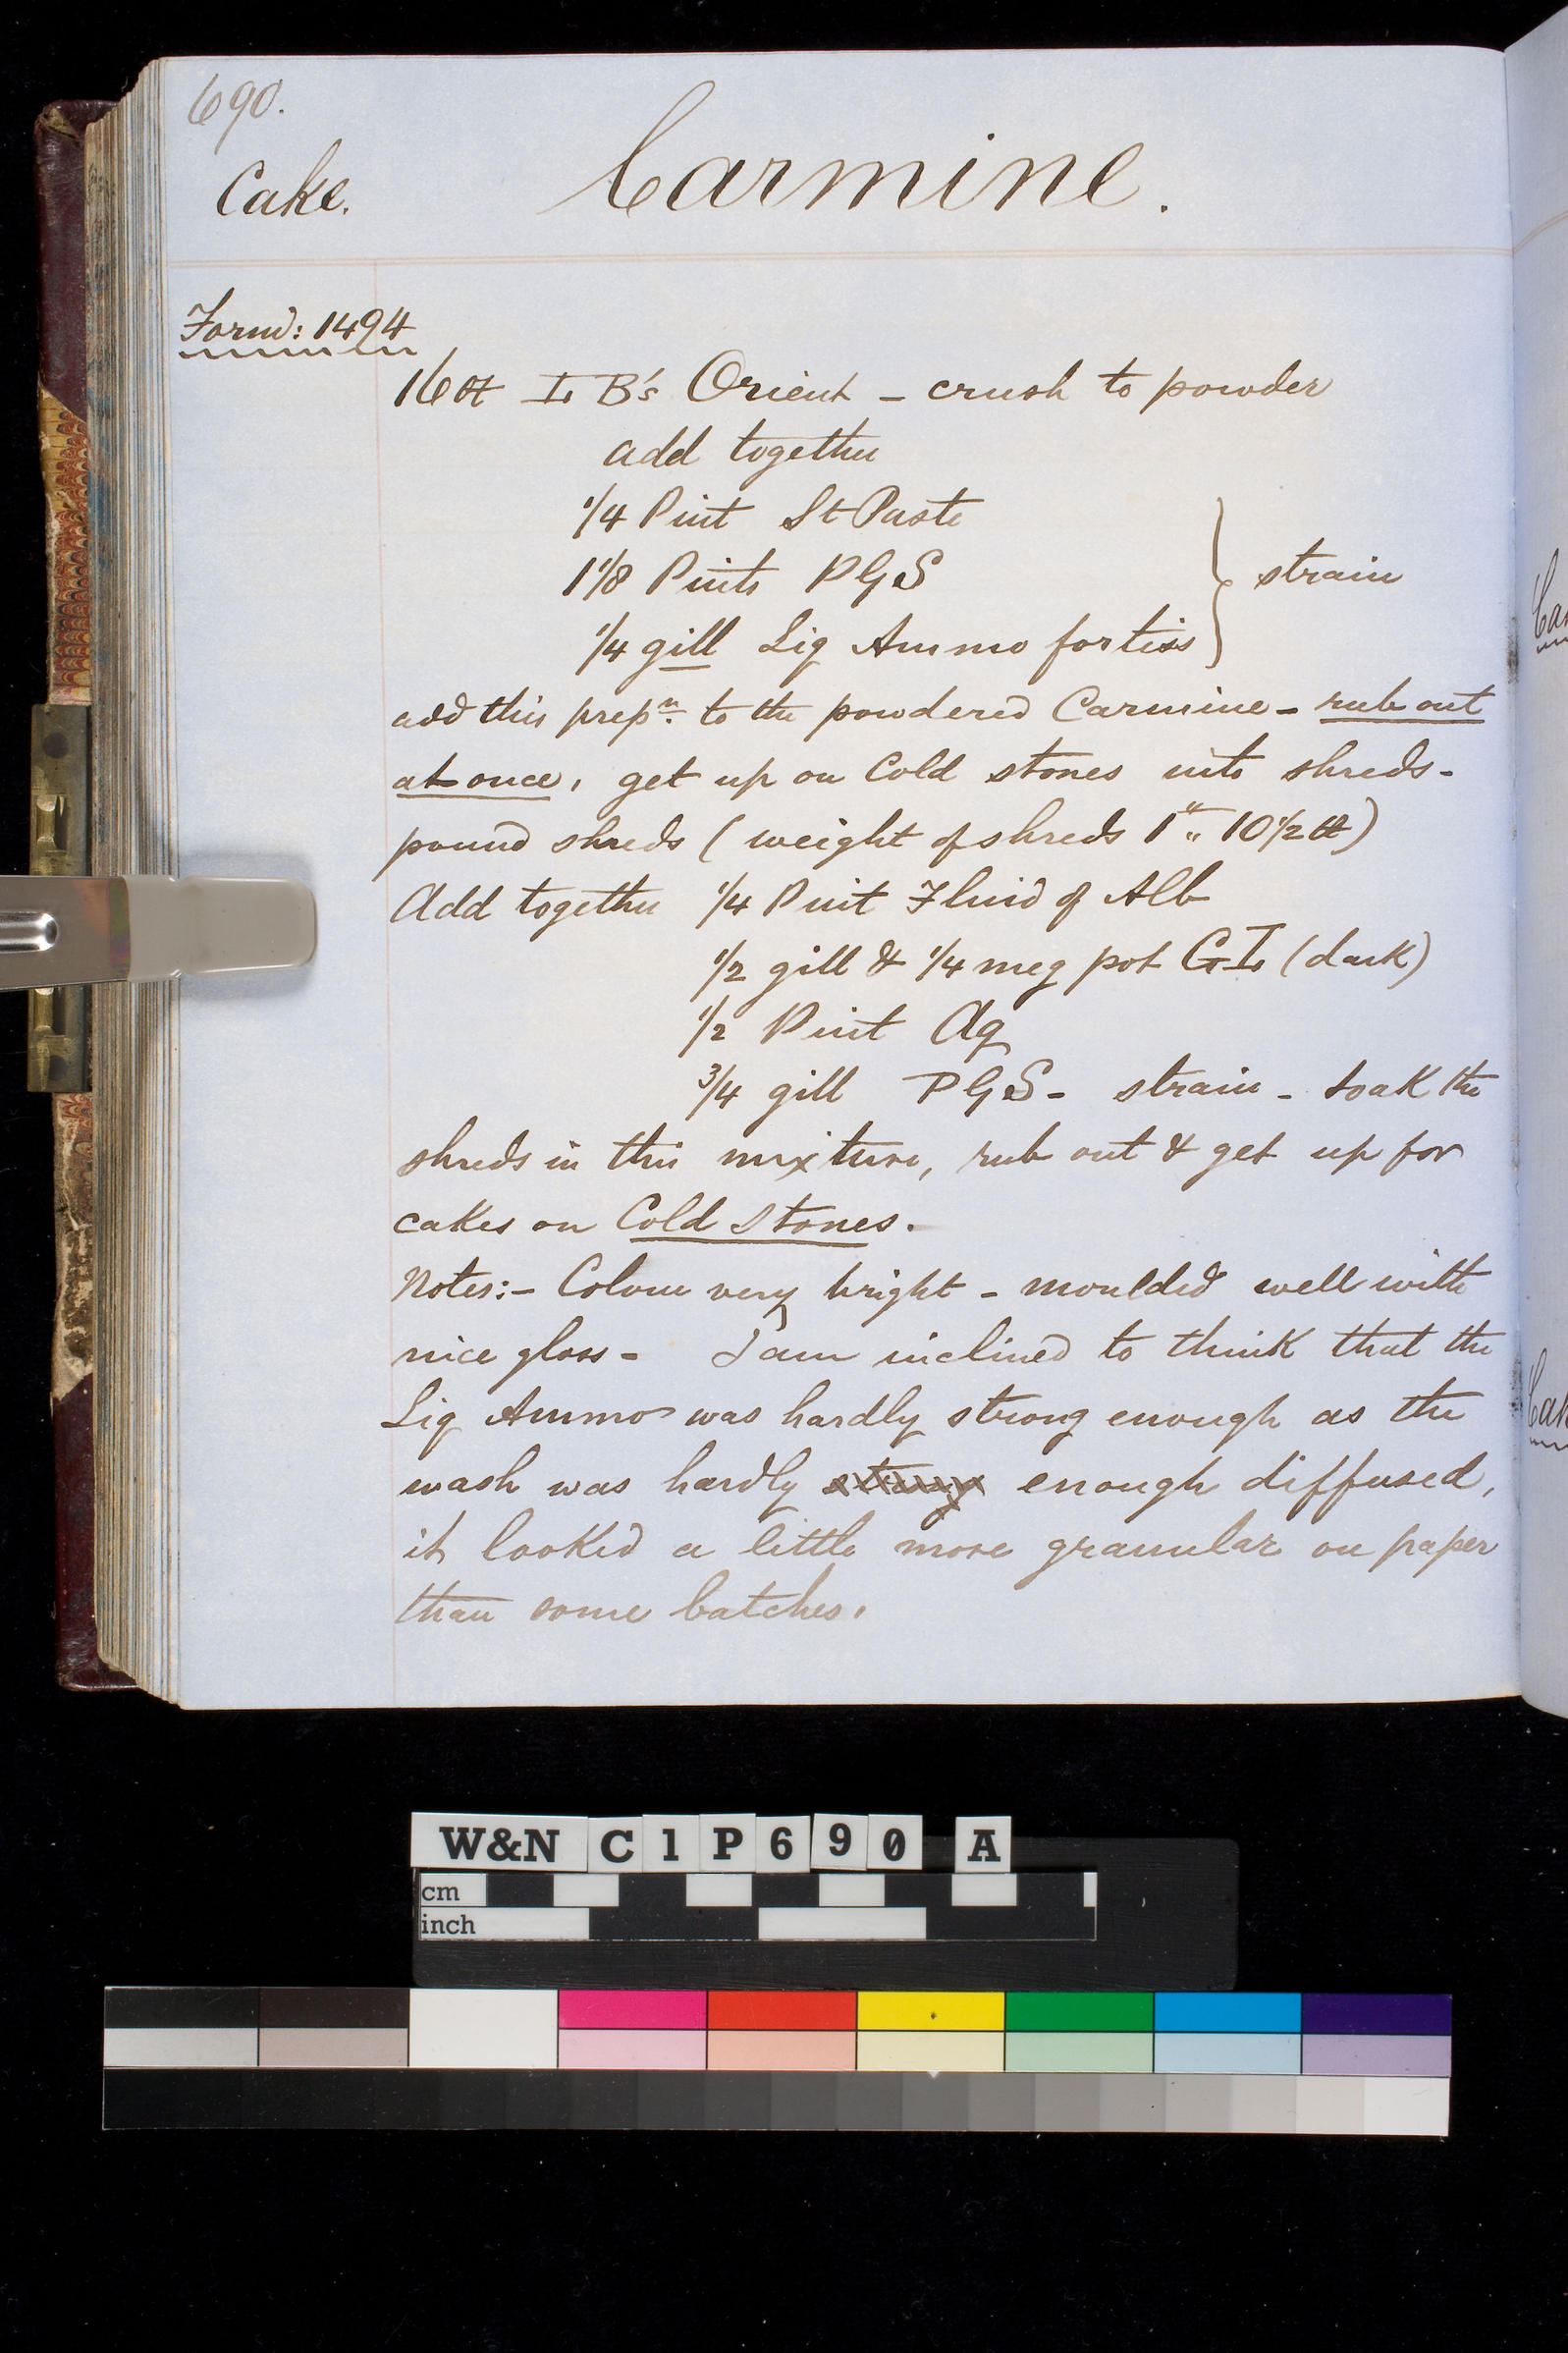 690.
Cake.
Carmine.
Form: 1494
16 ℔ L B's Orient - crush to powder
add together
1/4 Pint St Paste
1 1/8 Pints PGS
1/4 gill Liq Ammo fortiss
} strain
add this prepn. to the powdered Carmine - rub out
at once, get up on Cold stones into shreds -
pound shreds ( weight of shreds 1 " 10 1/2 ℔)
Add together 1/4 Pint Fluid of Alb
1/2 gill & 1/4 meg pot GL (dark)
1/2 Pint Aq
3/4 gill PGS - strain - soak the
shreds in this mixture, rub out & get up for
cakes on Cold Stones.
Notes:- Colour very bright - moulded well with
nice gloss - I am inclined to think that the
Liq Ammo was hardly strong enough as the
wash was hardly strong enough diffused,
it looked a little more granular on paper
than some batches.
W&N C1P690 A
cm
inch